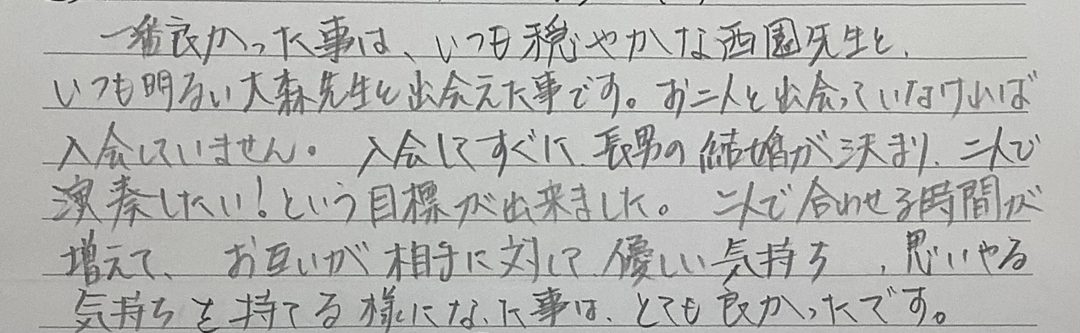 一番良かった事は、いつも穏やかな西園先生と、
いつも明るい大森先生と出会えた事です。お二人と出会っていなければ
入会していません。 入会してすぐに、長男の結婚が決まり、二人で
演奏したい!という目標が出来ました。 二人で合わせる時間が
増えて、 お互いが相手に対して優しい気持ち 、思いやる
気持ちを持てる様になった事は、とても良かったです。